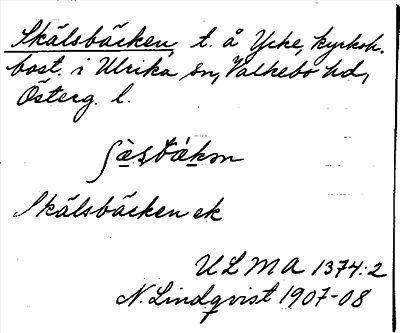 Skälsbäcken, t. å Ycke, kyrkoh.
bost. i Ulrika sn, Valkebo hd,
Österg. l.
Skälsbäcken ek
ULMA 1374:2
N. Lindqvist 1907-08